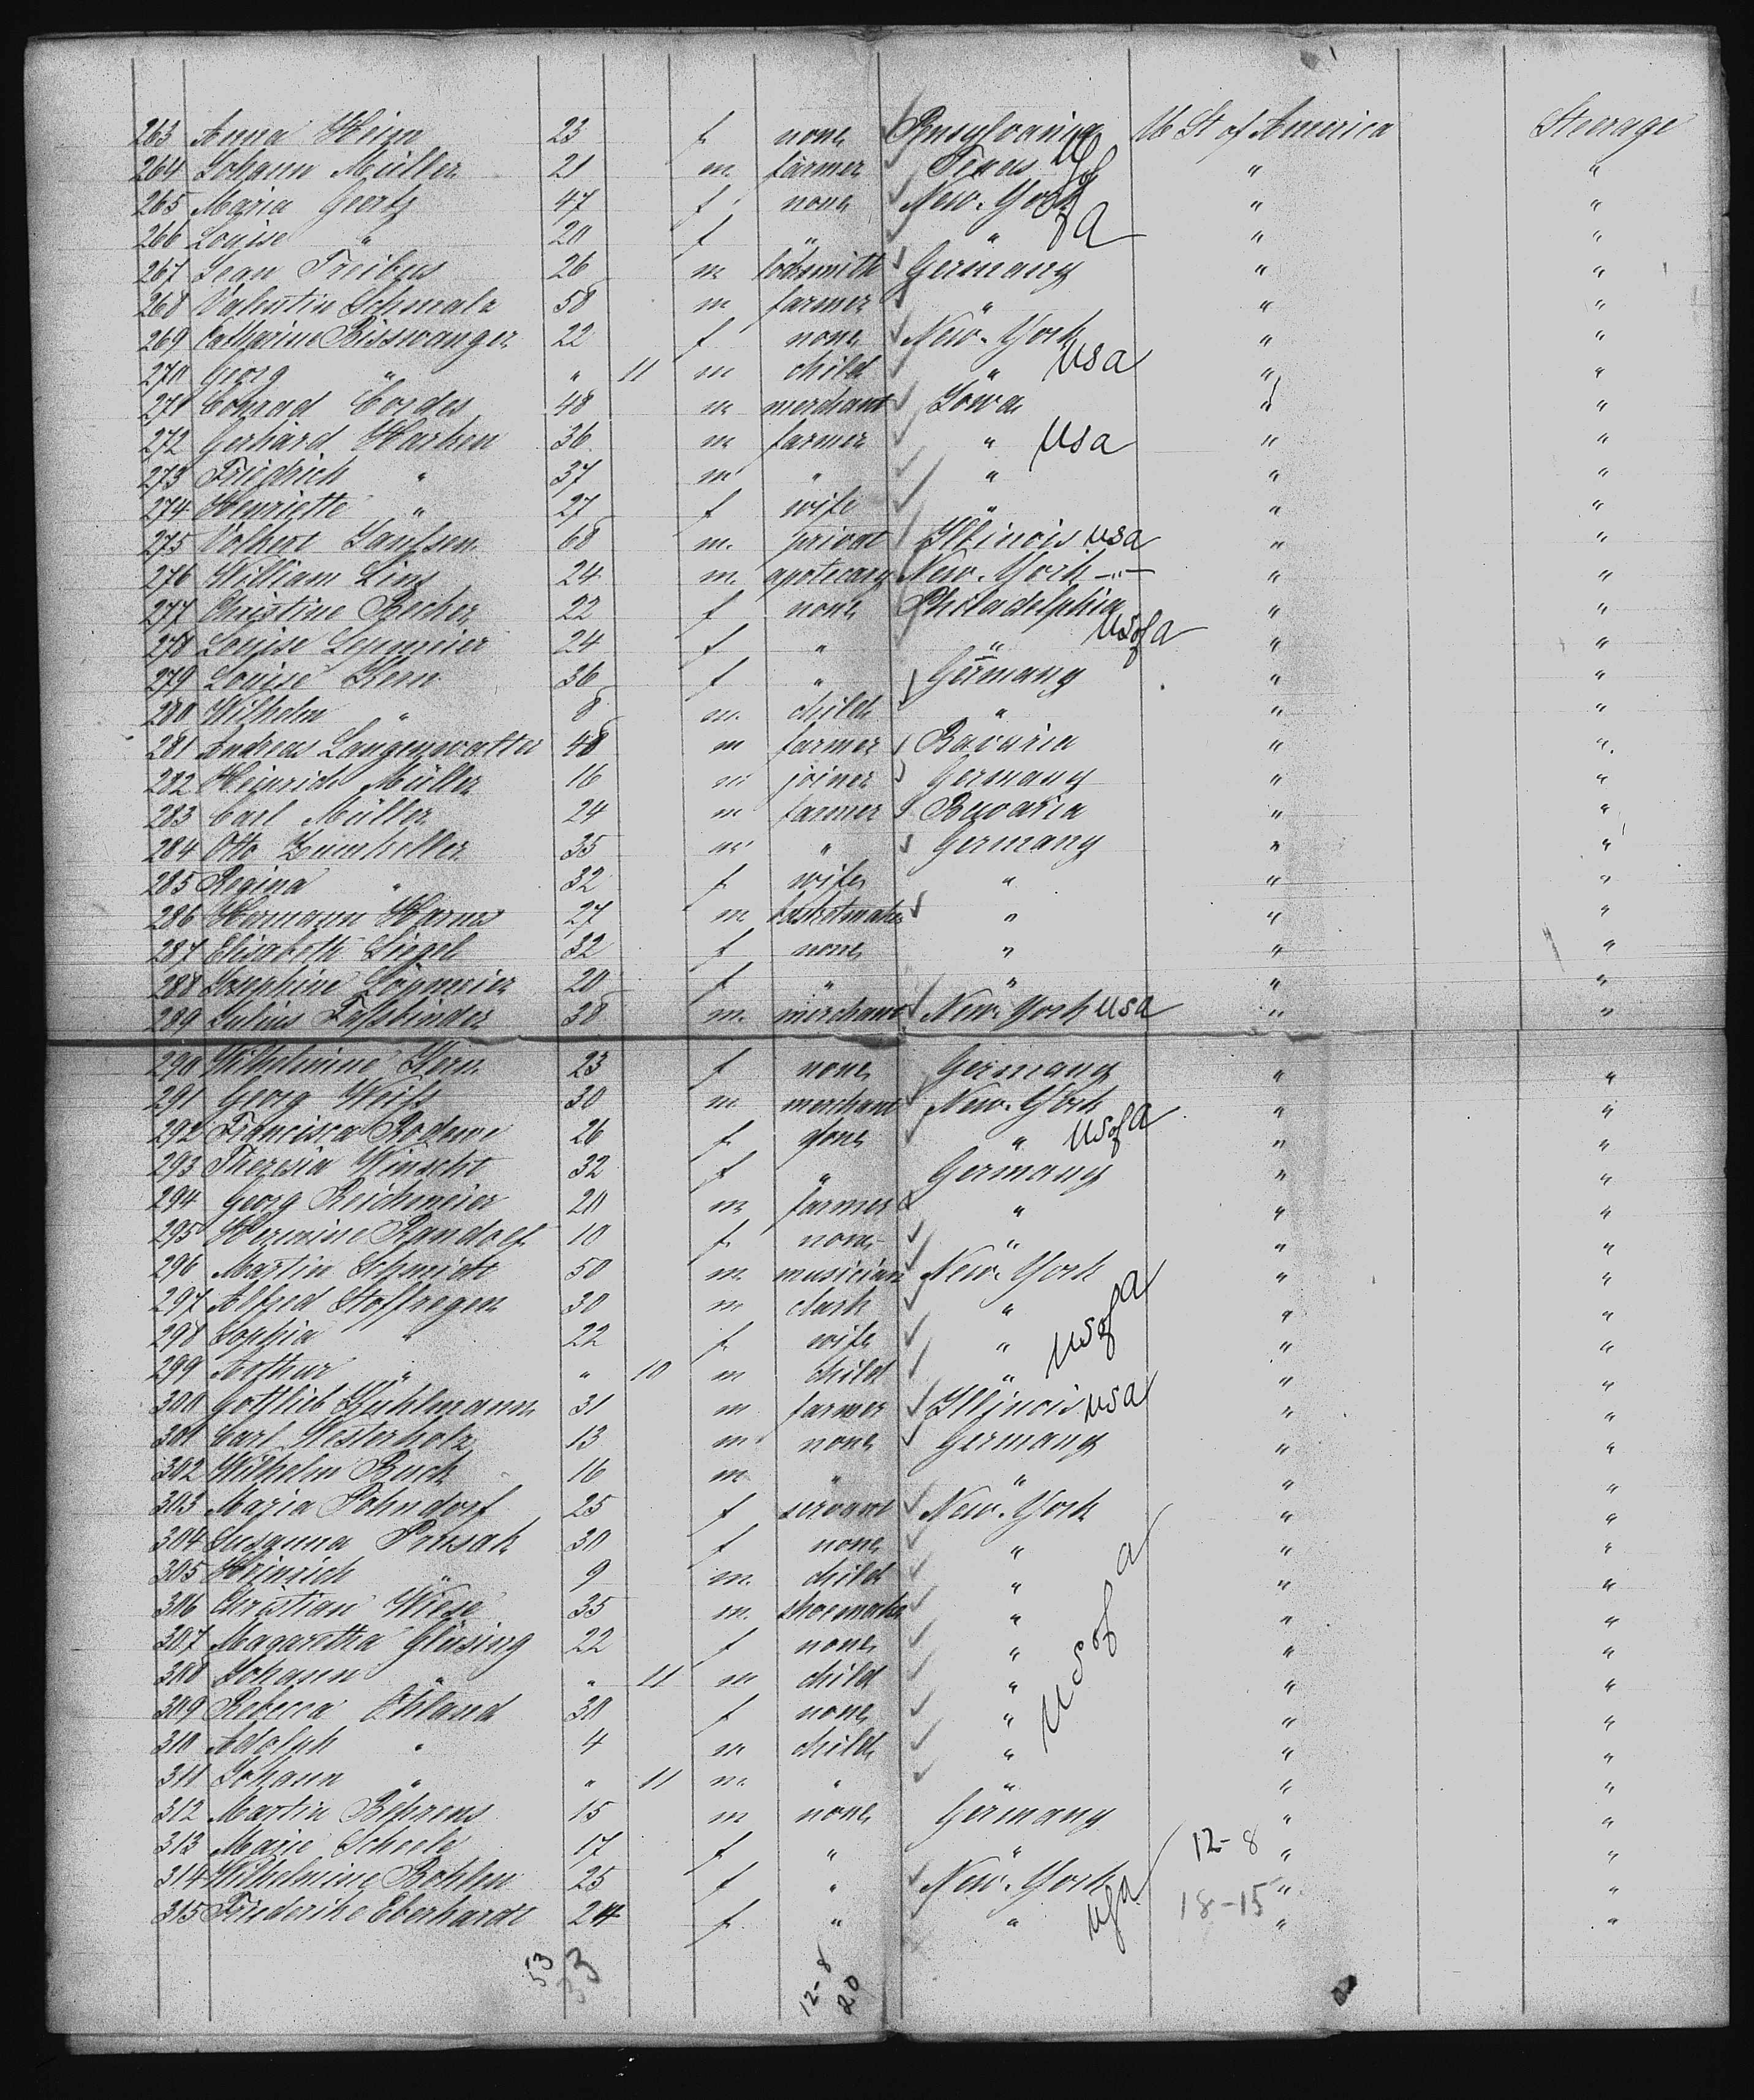 263 Anna Heim 23 f none Pensylvania U St of America Steerage
264 Johann Müller 21 m farmer Texas " "
265 Maria Geertz 47 f none New-York " "
266 Louise " 20 f " " " "
U S of A
267 Jean Treibus 26 m locksmith Germany " "
268 Valentin Schmalz 58 m farmer " " "
269 Catharine Bisswanger 22 f none New-York " "
270 Georg " " 11 m child " usa " "
271 Conrad Cordes 48 m merchant Iowa " "
272 Gerhard Harken 36 m farmer " usa " "
273 Friedrich " 37 m " " " "
274 Henriette " 27 f wife " " "
275 Volkert Janssen 68 m. privat Illinois usa " "
276 William Lins 24 m. apotecary New-York -"- " "
277 Christine Becher 22 f none Philadelphia " "
278 Louise Lepmeier 24 f " " us of a " "
279 Louise Kern 36 f " Germany " "
280 Wilhelm " 8 m. child " " "
281 Andreas Langenwalter 48 m farmer Bavaria " "
282 Heinrich Müller 16 m joiner Germany " "
283 Carl Müller 24 m farmer Bavaria " "
284 Otto Zumkeller 35 m " Germany " "
285 Regina " 32 f wife " " "
286 Hermann Harms 27 m basketmaker " " "
287 Elisabeth Siegel 32 f none " " "
288 Josephine 20 f " " " "
289 Julius Faßbinder 38 m. merchant New-York usa " "
290 Wilhelmine Kern 23 f none Germany " "
291 Georg Weiß 30 m merchant New-York " "
292 Francisca 26 f none " us of a " "
293 Theresia Winscht 32 f " Germany " "
294 Georg Reichmeier 20 m farmer " " "
295 Hermine Randolf 10 f none " " "
296 Martin Schmidt 50 m. musician New-York " "
297 Alfred Stoffregen 30 m clark " " "
298 Sophia " 22 f wife " us of a " "
299 Arthur " " 10 m child " " "
300 Gottlieb Kuhlmann 31 m farmer Illinois usa " "
301 Carl Westerholz 13 m none Germany " "
302 Wilhelm Buck 16 m " " " "
303 Maria Pohndorf 25 f servant New-York " "
304 Susanna Prusak 30 f none " " "
305 Heinrich " 9 m. child " " "
306 Christian Wiese 35 m. shoemaker " " "
307 Magaretha Glüsing 22 f none " us of a " "
308 Johann " " 11 m child " " "
309 Rebecca Ohland 30 f none " " "
310 Adolph " 4 m child " " "
311 Johann " " 11 m. " " " "
312 Martin Behrens 15 m none Germany " "
313 Marie Scheele 17 f " " 12-8 " "
314 Wilhelmine Bohlen 25 f " New-York " "
315 Friederike Eberhardt 24 f " " usa 18-15 " "
53 33 12-8
20